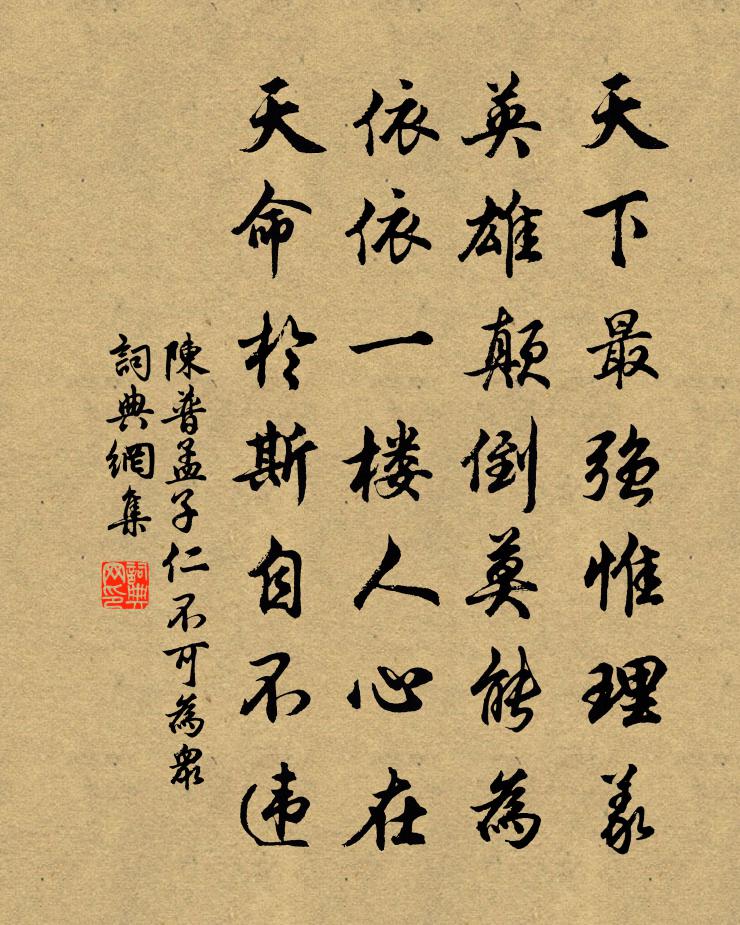 天下最强惟理義
英雄颠倒莫能為
依依一楼人心在
天命於斯自不违
陳普孟子仁不可為眾
詞典網集
詞典网印